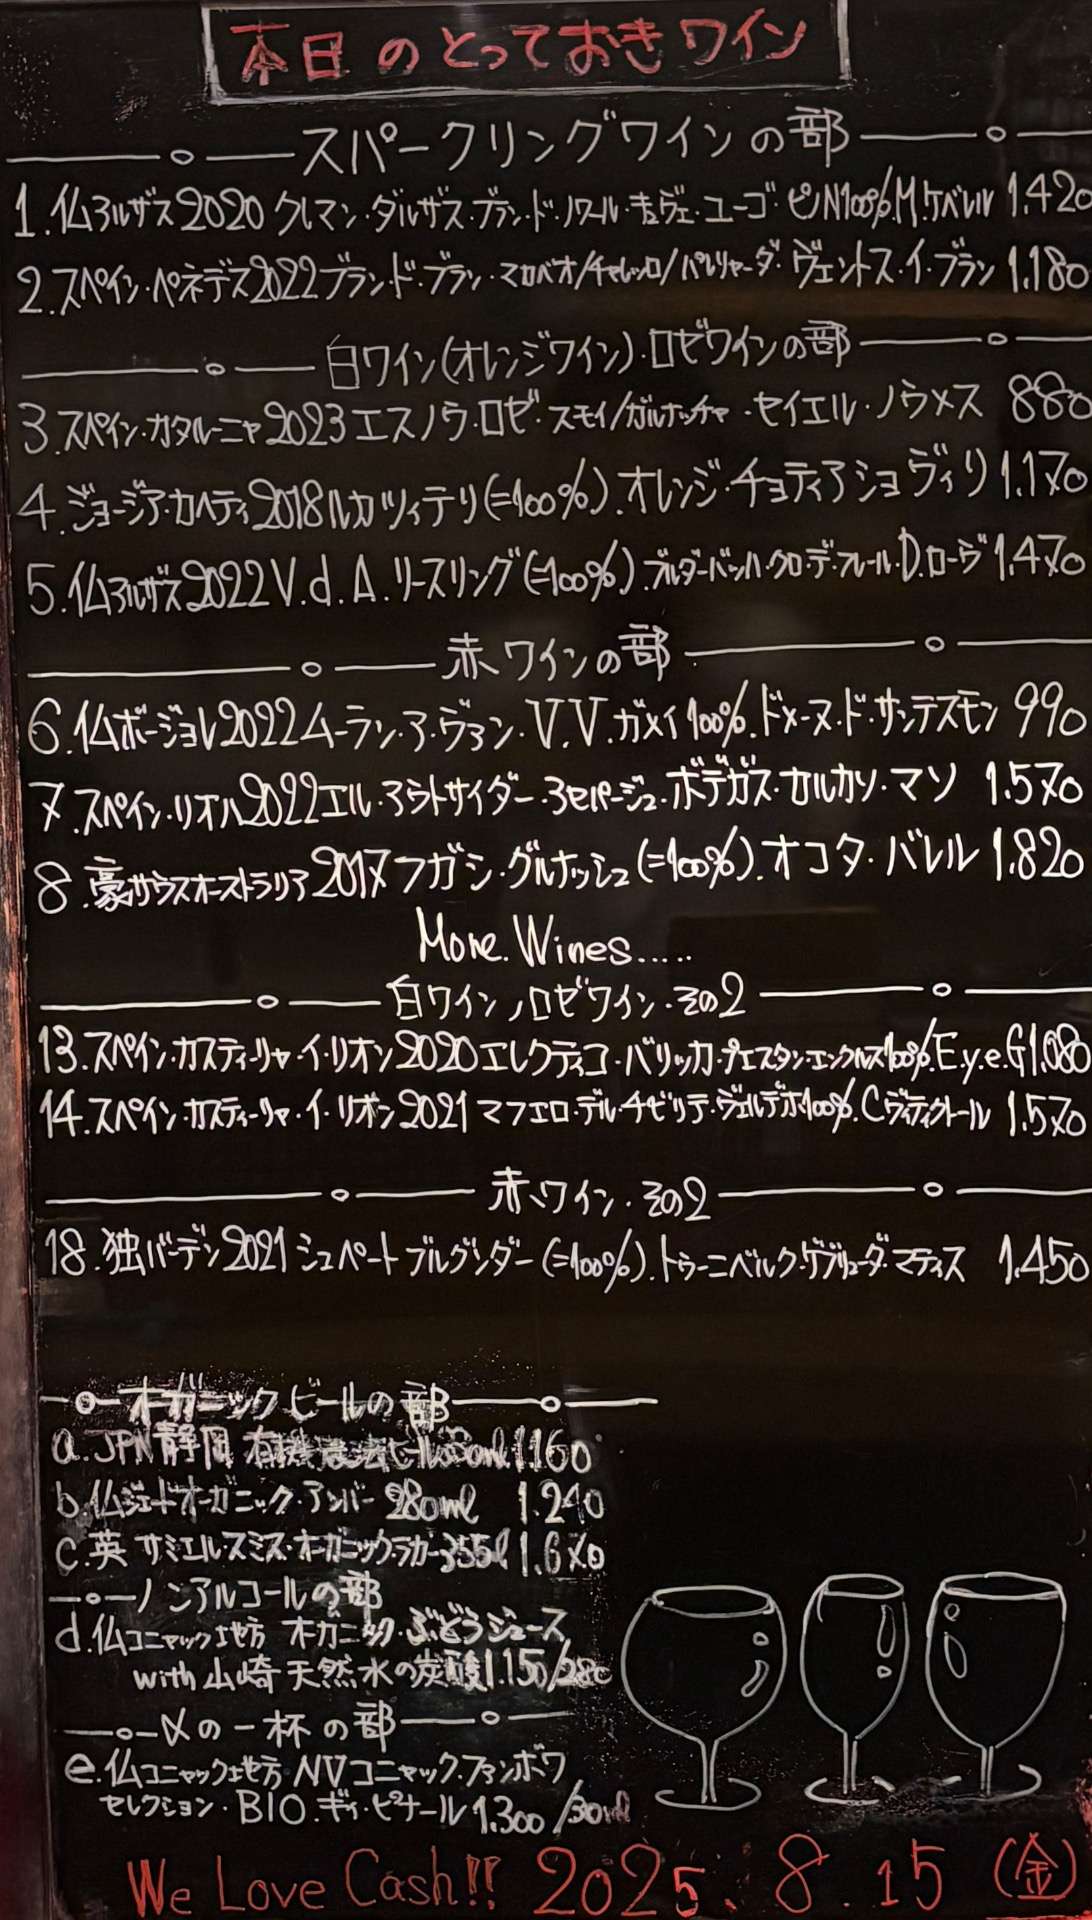 本日のとっておきワイン
スパークリングワインの部
1.仏アルザス2020クレマン・ダルザス・ブラン・ド・ノワール・キュヴェ・ユーゴ・ピN100%.M.ケベレル 1.420
2.スペイン・ペネデス2022ブラン・ド・ブラン・マカベオ/チャレッロ/パレリャーダ・ヴェントス・イ・ブラン 1.180
白ワイン(オレンジワイン)・ロゼワインの部
3.スペイン・カタルーニャ2023エスノウ・ロゼ・スモイ/ガルナッチャ・セイエル・ノウメス 880
4.ジョージア・カヘティ2018ルカツィテリ(=100%).オレンジ・チョティアショヴィリ 1.170
5.仏アルザス2022 V.d.A.リースリング(=100%).ブルダーバッハ・クロ・デ・フレール・D.ローヴ 1.470
赤ワインの部
6.仏ボージョレ2022ムーラン・ア・ヴァン・V.V.ガメイ100%.ドメーヌ・ド・サンテスモン 990
7.スペイン・リオハ2022エル・アウトサイダー・3セパージュ・ボデガス・カルカソ・マソ 1.570
8.豪サウスオーストラリア2017フガジ・グルナッシュ(=100%).オコタ・バレル 1.820
More.Wines.....
白ワイン/ロゼワイン・その2
13.スペイン・カスティーリャ・イ・リオン2020エレクティコ・バリッカ・チェスタン・エンクルス100%.E.y.e.G 1.080
14.スペイン・カスティーリャ・イ・リオン2021マフェロ・デル・チビリテ・ヴェルデホ100%.Cヴィティクトール 1.570
赤ワイン・その2
18.独バーデン2021シュペートブルグンダー(=100%).トゥーニベルク・ゲブリューダ・マティス 1.450
オーガニックビールの部
a.JPN静岡 有機農法ビール ml 1.160
b.仏ジェードオーガニック・アンバー 280ml 1.240
c.英 サミエル・スミス・オーガニックラガー355l 1.670
ノンアルコールの部
d.仏コニャック地方 オーガニック・ぶどうジュース
with 山崎 天然水の炭酸 1.150/280
〆の一杯の部
e.仏コニャック地方 NVコニャック・ファンボワ
セレクション・BIO.ギィ・ピナール 1.300/30ml
We Love Cash!! 2025.8.15(金)